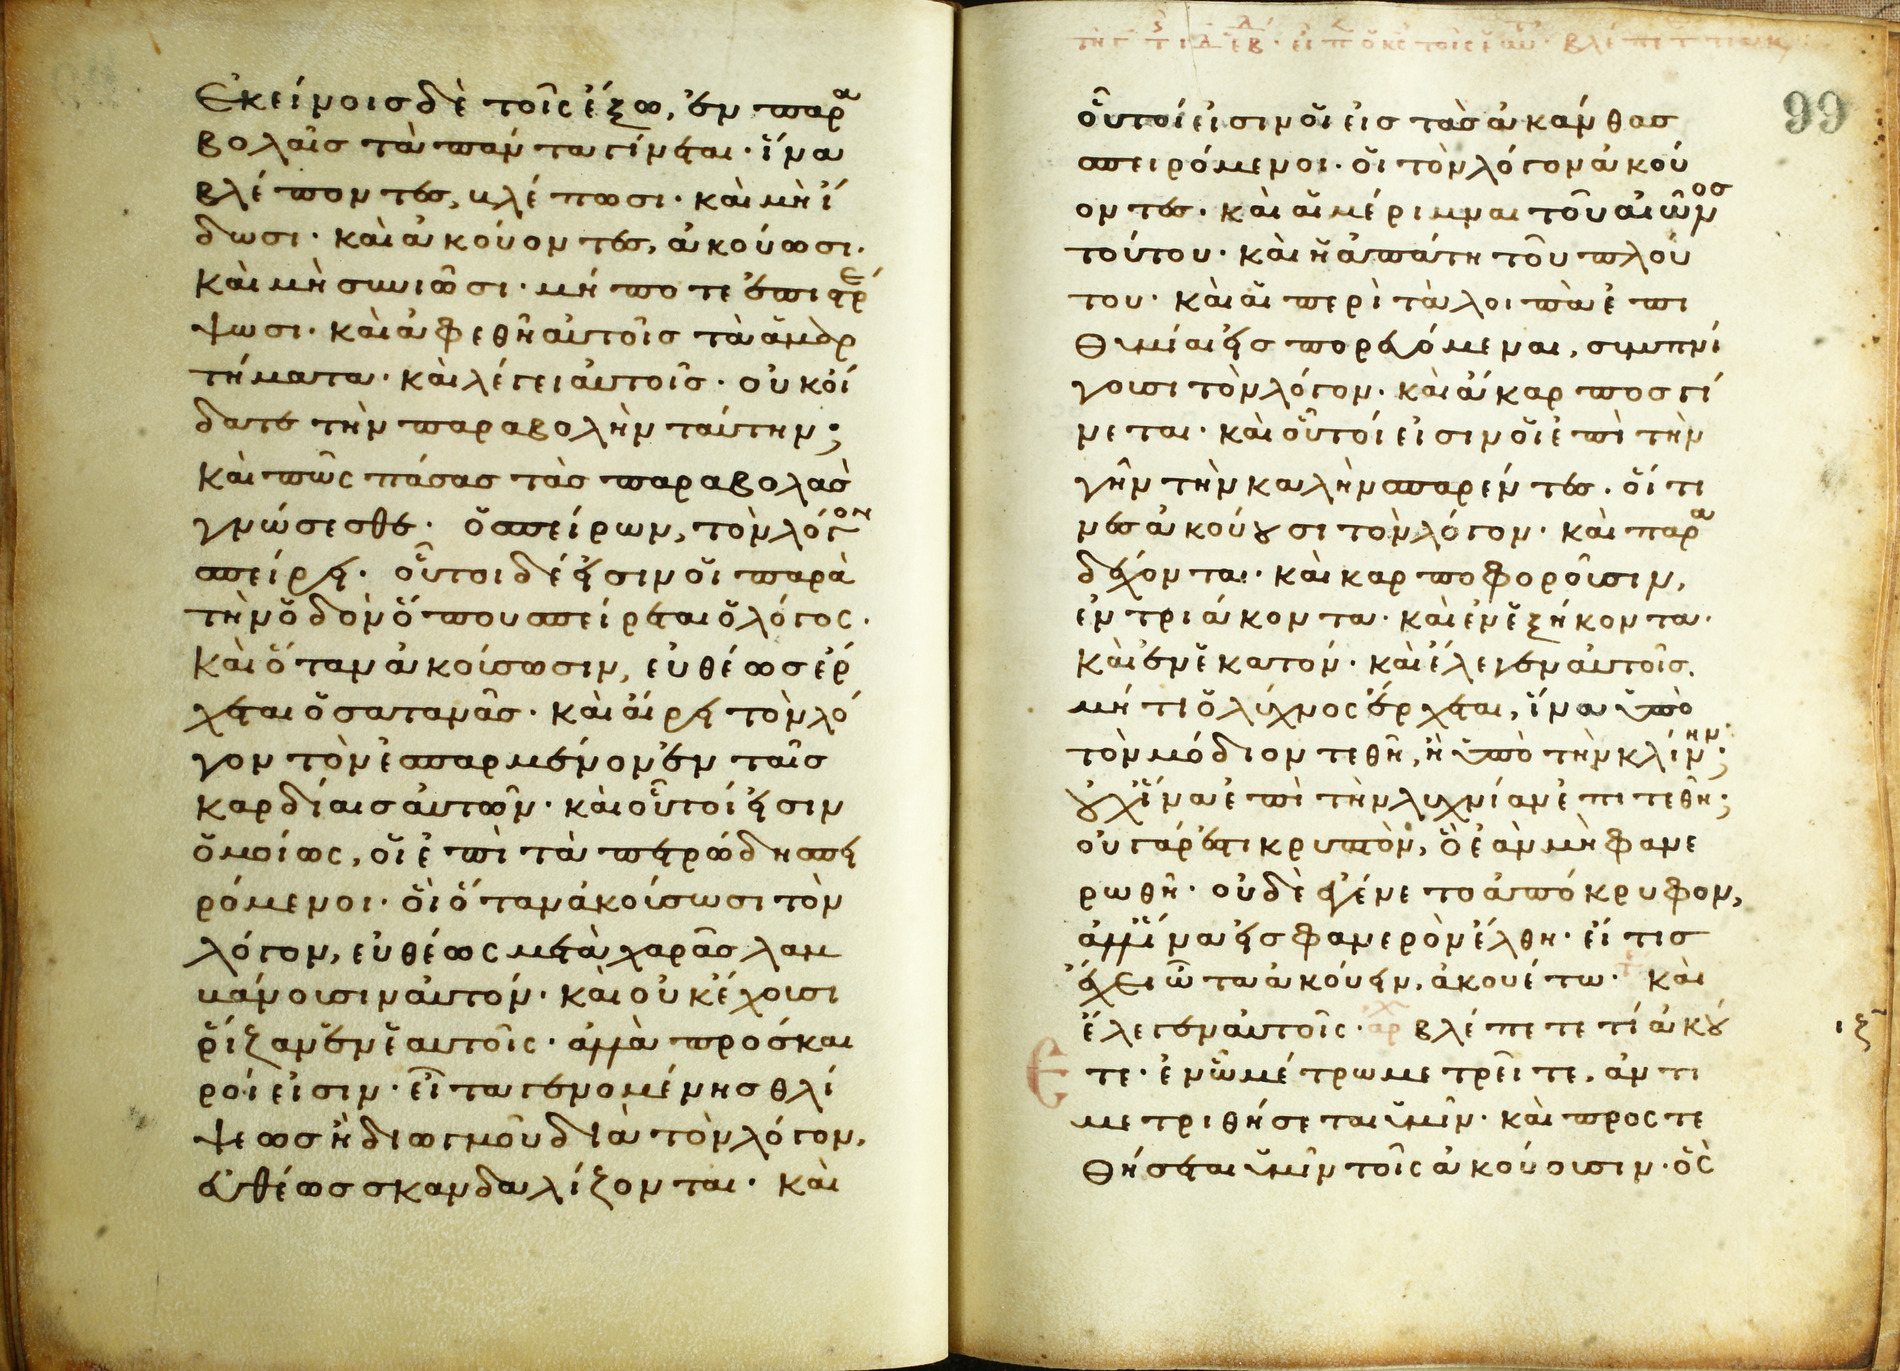 Ἐκείνοις δὲ τοῖς ἔξω, ἐν παρα
βολαῖς τὰ πάντα γίνεται· ἵνα
βλέποντες, βλέπωσι· καὶ μὴ ἴ
δωσι· καὶ ἀκούοντες, ἀκούωσι·
καὶ μὴ συνιῶσι· μή ποτε ἐπιστρέ
ψωσι· καὶ ἀφεθῆ αὐτοῖς τὰ ἁμαρ
τήματα· καὶ λέγει αὐτοῖς· οὐκ οἴ
δατε τὴν παραβολὴν ταύτην;
καὶ πῶς πάσας τὰς παραβολὰς
γνώσεσθε· ὁ σπείρων, τὸν λόγον
σπείρει· οὗτοι δέ εἰσιν οἱ παρὰ
τὴν ὁδὸν ὅπου σπείρεται ὁ λόγος·
καὶ ὅταν ἀκούσωσιν, εὐθέως ἔρ
χεται ὁ σατανᾶς· καὶ αἴρει τὸν λό
γον τὸν ἐσπαρμένον ἐν ταῖς
καρδίαις αὐτῶν· καὶ οὗτοί εἰσιν
ὁμοίως, οἱ ἐπὶ τὰ πετρώδη σπει
ρόμενοι· οἳ ὅταν ἀκούσωσι τὸν
λόγον, εὐθέως μετὰ χαρᾶς λαμ
βάνουσιν αὐτόν· καὶ οὐκ ἔχουσι
ῥίζαν ἐν ἑαυτοῖς· ἀλλὰ πρόσκαι
ροί εἰσιν· εἶτα γενομένης θλί
ψεως ἢ διωγμοῦ διὰ τὸν λόγον,
εὐθέως σκανδαλίζονται· καὶ
99
οὗτοί εἰσιν οἱ εἰς τὰς ἀκάνθας
σπειρόμενοι· οἱ τὸν λόγον ἀκού
οντες· καὶ αἱ μέριμναι τοῦ αἰῶνος
τούτου· καὶ ἡ ἀπάτη τοῦ πλού
του· καὶ αἱ περὶ τὰ λοιπὰ ἐπι
θυμίαι εἰσπορευόμεναι, συμπνί
γουσι τὸν λόγον· καὶ ἄκαρπος γί
νεται· καὶ οὗτοί εἰσιν οἱ ἐπὶ τὴν
γῆν τὴν καλὴν σπαρέντες· οἵτι
νες ἀκούουσι τὸν λόγον· καὶ παρα
δέχονται· καὶ καρποφοροῦσιν,
ἐν τριάκοντα· καὶ ἐν ἑξήκοντα·
καὶ ἐν ἑκατόν· καὶ ἔλεγεν αὐτοῖς·
μή τι ὁ λύχνος ἔρχεται, ἵνα ὑπὸ
τὸν μόδιον τεθῆ, ἢ ὑπὸ τὴν κλίνην;
οὐχ ἵνα ἐπὶ τὴν λυχνίαν ἐπιτεθῆ;
οὐ γάρ ἐστι κρυπτὸν, ὃ ἐὰν μὴ φανε
ρωθῆ· οὐδὲ ἐγένετο ἀπόκρυφον,
ἀλλ' ἵνα εἰς φανερὸν ἔλθη· εἴ τις
ἔχει ὦτα ἀκούειν, ἀκουέτω· καὶ
ἔλεγεν αὐτοῖς· βλέπετε τί ἀκού
ιξ
ετε· ἐν ᾧ μέτρω μετρεῖτε, ἀντι
μετρηθήσεται ὑμῖν· καὶ προστε
θήσεται ὑμῖν τοῖς ἀκούουσιν· ὃς